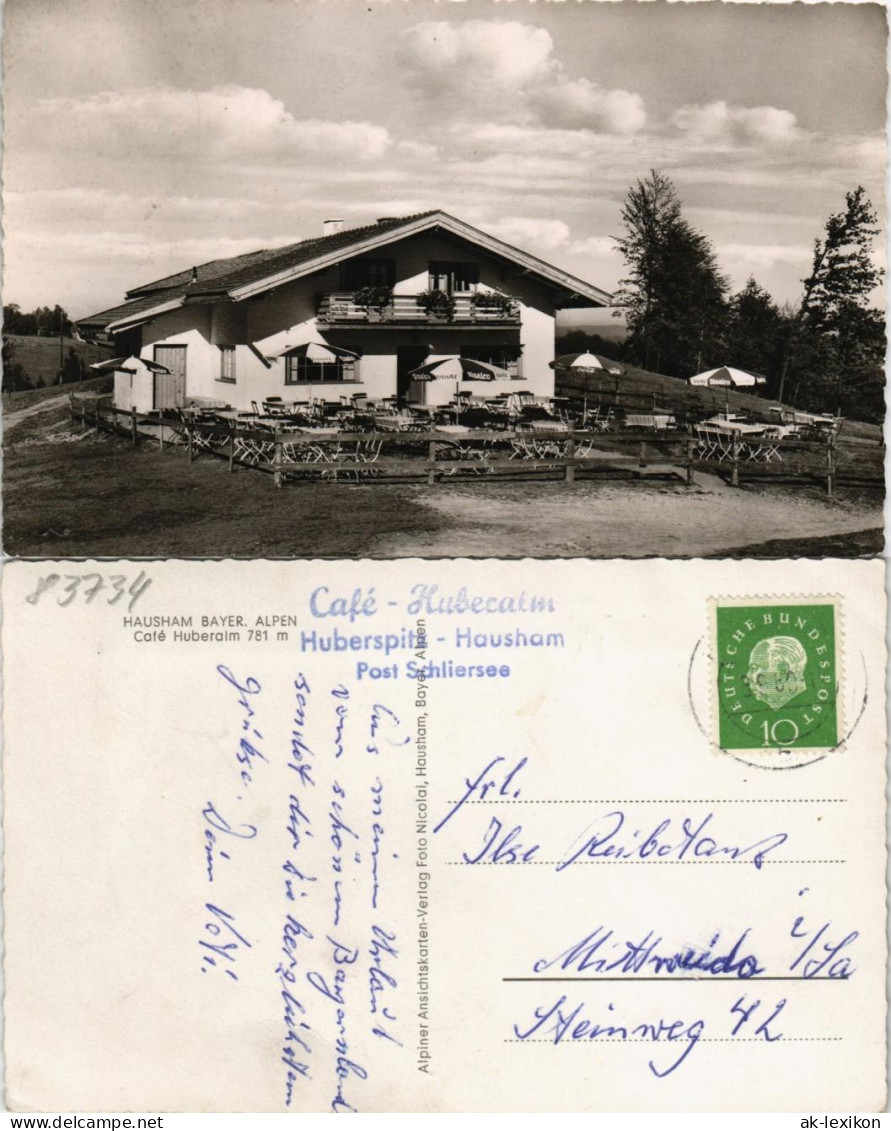 83734
HAUSHAM BAYER. ALPEN
Café Huberalm 781 m
Café - Huberalm
Huberspitz - Hausham
Post Schliersee
DEUTSCHE BUNDESPOST
10
Alpiner Ansichtskarten-Verlag Foto Nicolai, Hausham, Bayer. Alpen
Aus meinem Urlaub
vom schönen Bayernland
sendet dir die herzlichsten
Grüße.
Dein
Frl.
Ilse Reibetanz
Mittweida i/Sa
Steinweg 42
ak-lexikon